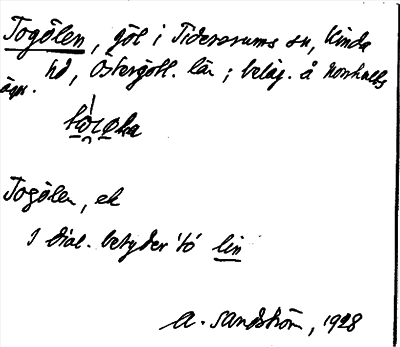 Togölen, göl i Tidersrums sn, Kinda
hd, Östergötl. län; beläg. å Norrhults
ägor.
Togölen, ek
I dial. betyder 'to' lin
A. Sandström, 1928